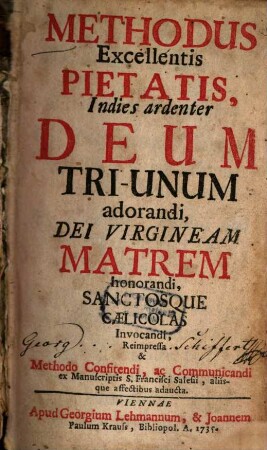 METHODUS
Excellentis
PIETATIS,
Indies ardenter
DEUM
TRI-UNUM
adorandi,
DEI VIRGINEAM
MATREM
honorandi,
SANCTOSQUE
CÆLICOLAS
Invocandi,
Reimpressa
Georg
&
Methodo Confitendi, ac Communicandi
ex Manuscriptis S. Francisci Salesii, aliis-
que affectibus adaucta.
VIENNAE
Apud Georgium Lehmannum, & Joannem
Paulum Krauss, Bibliopol. A. 1735.